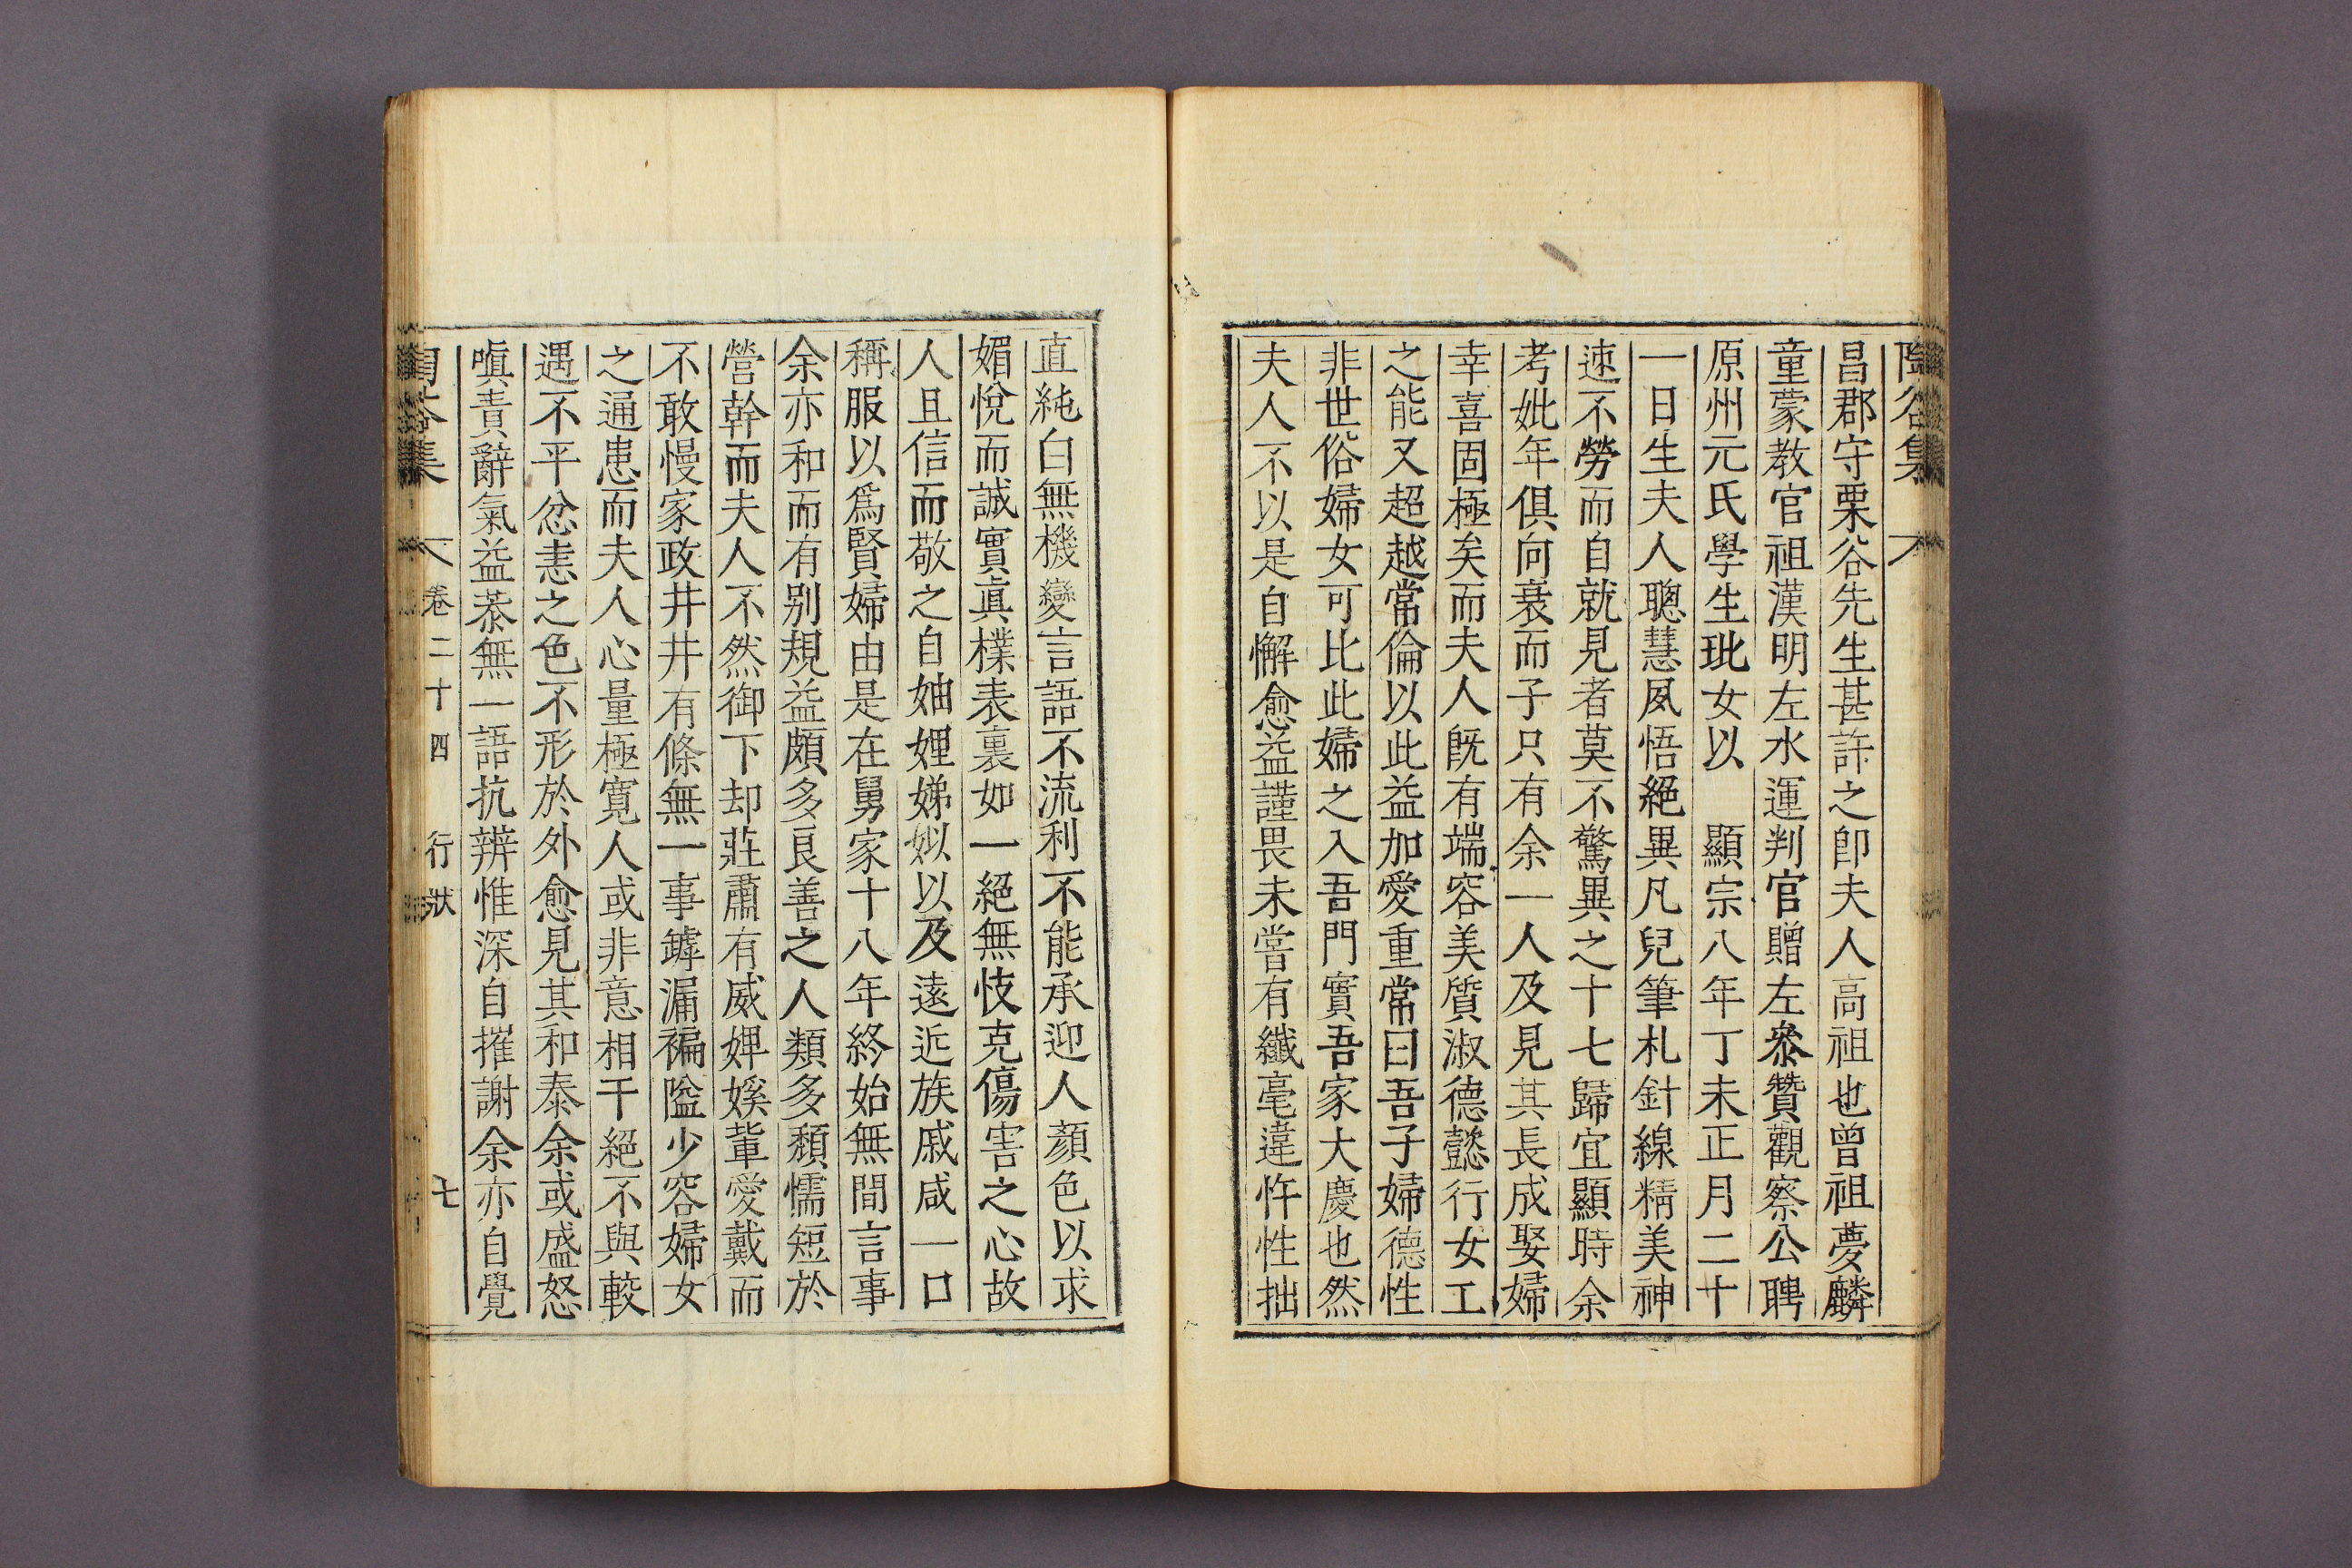 陶谷集
昌郡守栗谷先生甚許之卽夫人高祖也曾祖夢麟
童蒙教官祖漢明左水運判官贈左叅贊觀察公聘
原州元氏學生玭女以 顯宗八年丁未正月二十
一日生夫人聰慧夙悟絕異凡兒筆札針線精美神
速不勞而自就見者莫不驚異之十七歸宜顯時余
考妣年俱向衰而子只有余一人及見其長成娶婦
幸喜固極矣而夫人旣有端容美質淑德懿行女工
之能又超越常倫以此益加愛重常曰吾子婦德性
非世俗婦女可比此婦之入吾門實吾家大慶也然
夫人不以是自懈愈益謹畏未嘗有纖毫違忤性拙
直純白無機變言語不流利不能承迎人顏色以求
媚悅而誠實眞樸表裏如一絕無忮克傷害之心故
人且信而敬之自妯娌娣姒以及遠近族戚咸一口
稱服以爲賢婦由是在舅家十八年終始無間言事
余亦和而有別規益頗多良善之人類多頹懦短於
營幹而夫人不然御下却莊肅有威婢媵輩愛戴而
不敢慢家政井井有條無一事罅漏褊隘少容婦女
之通患而夫人心量極寬人或非意相干絕不與較
遇不平忿恚之色不形於外愈見其和泰余或盛怒
嗔責辭氣益恭無一語抗辨惟深自摧謝余亦自覺
陶谷集 卷二十四 行狀 七